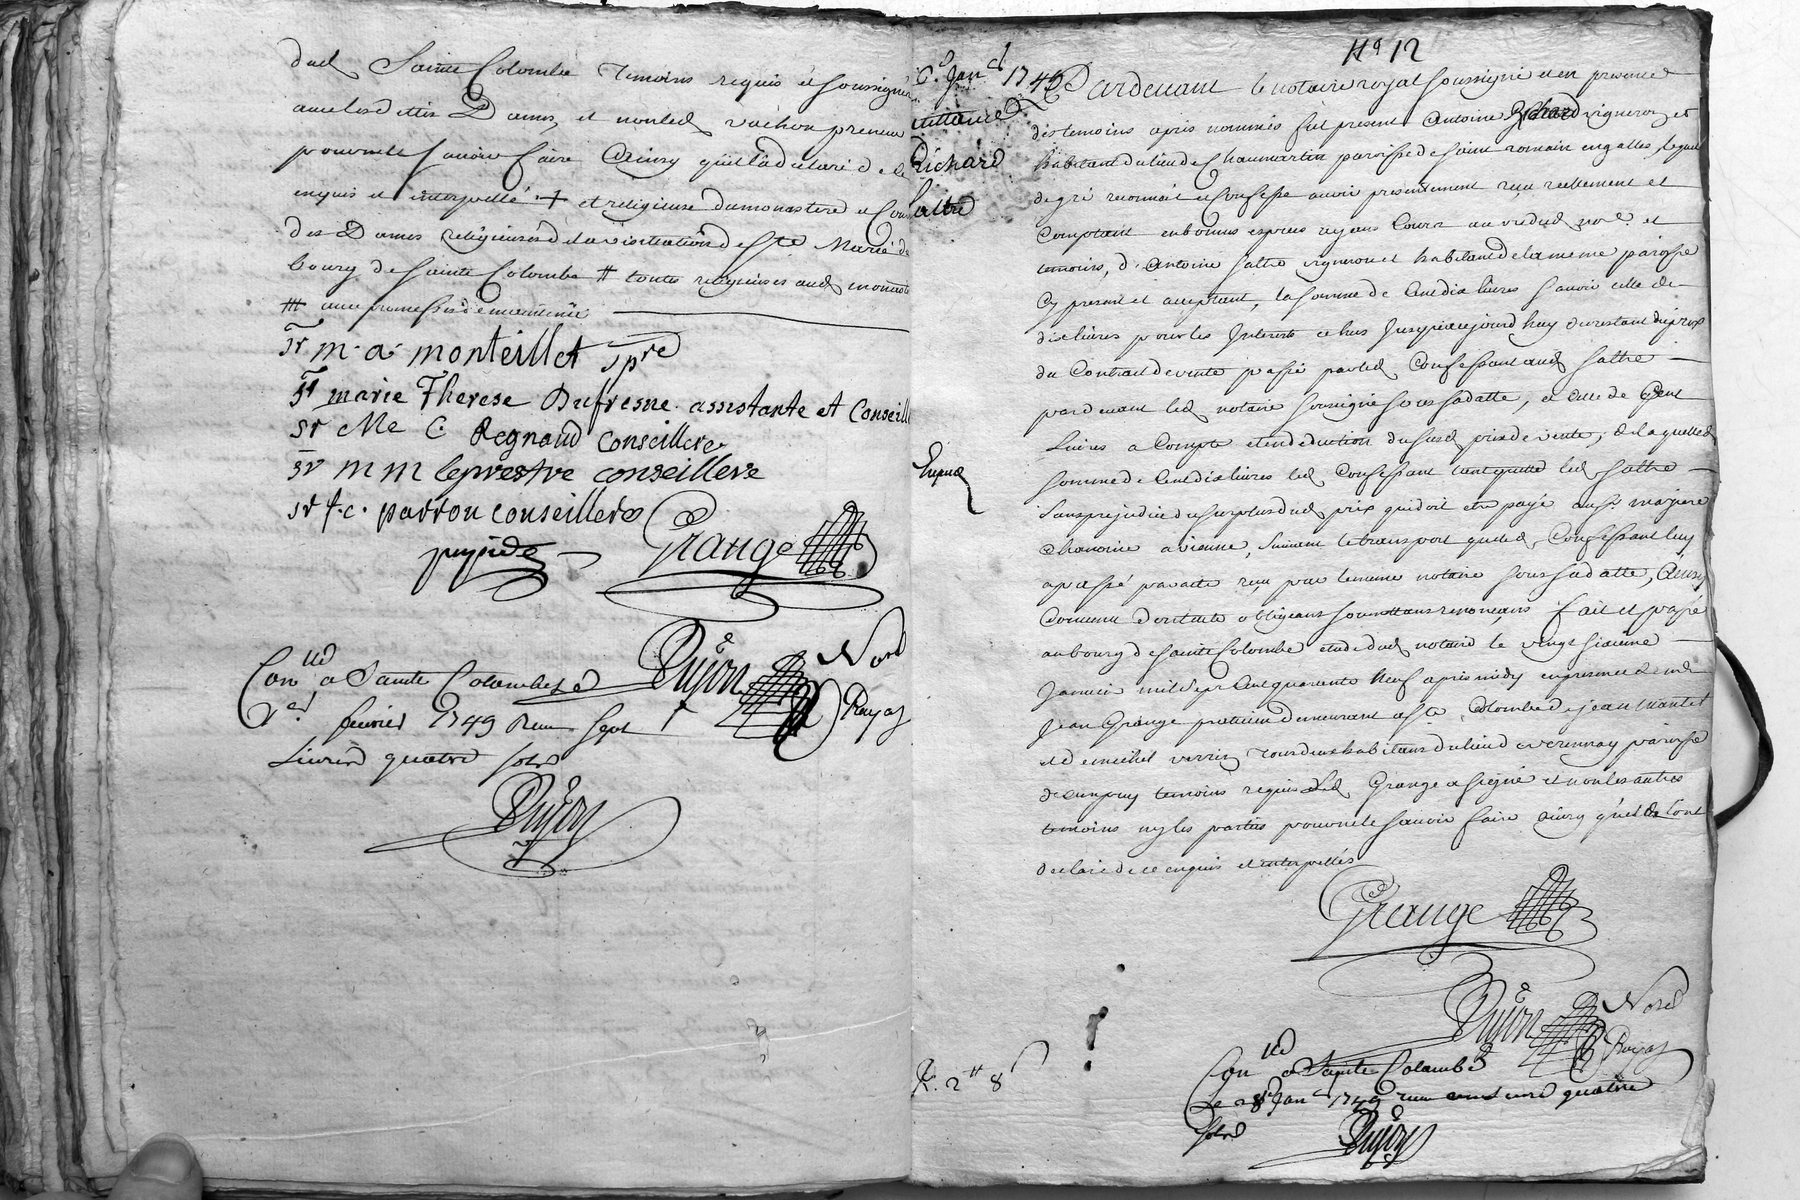 dud Sainte Colombe temoins requis et soussignés
avec lesdittes Dames, et non led Vachon preneur
pour ne le sçavoir faire ainsy qu'il a declaré de ce
enquis et interpellé + et religieuse du monastere
des Dames religieuses de la visitation de Ste Marie du
bourg de Sainte Colombe # toutes religieuses aud monastere
## avec promesses de
Sr m. a. monteillet Spre
Sr marie Therese Dufresne assistante et Conseill
Sr Me C. Regnaud conseillere
Sr m m leprestre conseillere
Sr f. c. parron conseillere
Grange
Dujon Nore Royal
Conlle a Sainte Colombe le
1er fevrier 1749 Reçu sept
Livres quatre sols
Dujon
No 12
26e Janer 1749
quittance
Richard
Saltre
Expédié
R. 2# 8s
Pardevant le notaire royal soussigné et en presence
des temoins apres nommés fut present Antoine Richard vigneron et
habitant du lieu de Chaumartin paroisse de Saint romain en galles, lequel
de gré reconnoit et confesse avoir presentement reçu reellement et
comptant en bonnes especes ayant cours au vu dud nore et
temoins, d'Antoine Saltre vigneron et habitant de la meme paroisse
cy present et acceptant, la somme de Cent dix livres sçavoir celle de
dix livres pour les Interets echus Jusqu'aujourd'huy du restant du prix
du Contrat de vente passé par led Confessant aud Saltre
pardevant led notaire soussigné sous sa datte, et celle de Cent
Livres a compte et en deduction dususd prix de vente; de laquelle
somme de Cent dix livres led Confessant tient quitte led Saltre
sans prejudice du surplus dud prix qui doit etre payé
chanoine a vienne, suivant le transport que led Confessant luy
a passé par acte reçu par le meme notaire sous sa datte, Ainsy
Convenu dont acte obligeant soumettant renonçant fait et passé
au bourg de Sainte Colombe etude dud notaire le vingt sixieme
Janvier mil sept Cent quarante neuf apres midy en presence de me
Jean Grange praticien demeurant a Ste Colombe, de Jean
et de michel verrin tous deux habitans du lieu paroisse
temoins requis led Grange a signé et non les autres
temoins ny les parties pour ne le sçavoir faire ainsy qu'ils l'ont
declaré de ce enquis et interpellés
Grange
Dujon Nore Royal
Conlle a Sainte Colombe
Le 28e Janer 1749 reçu quatre
sols
Dujon